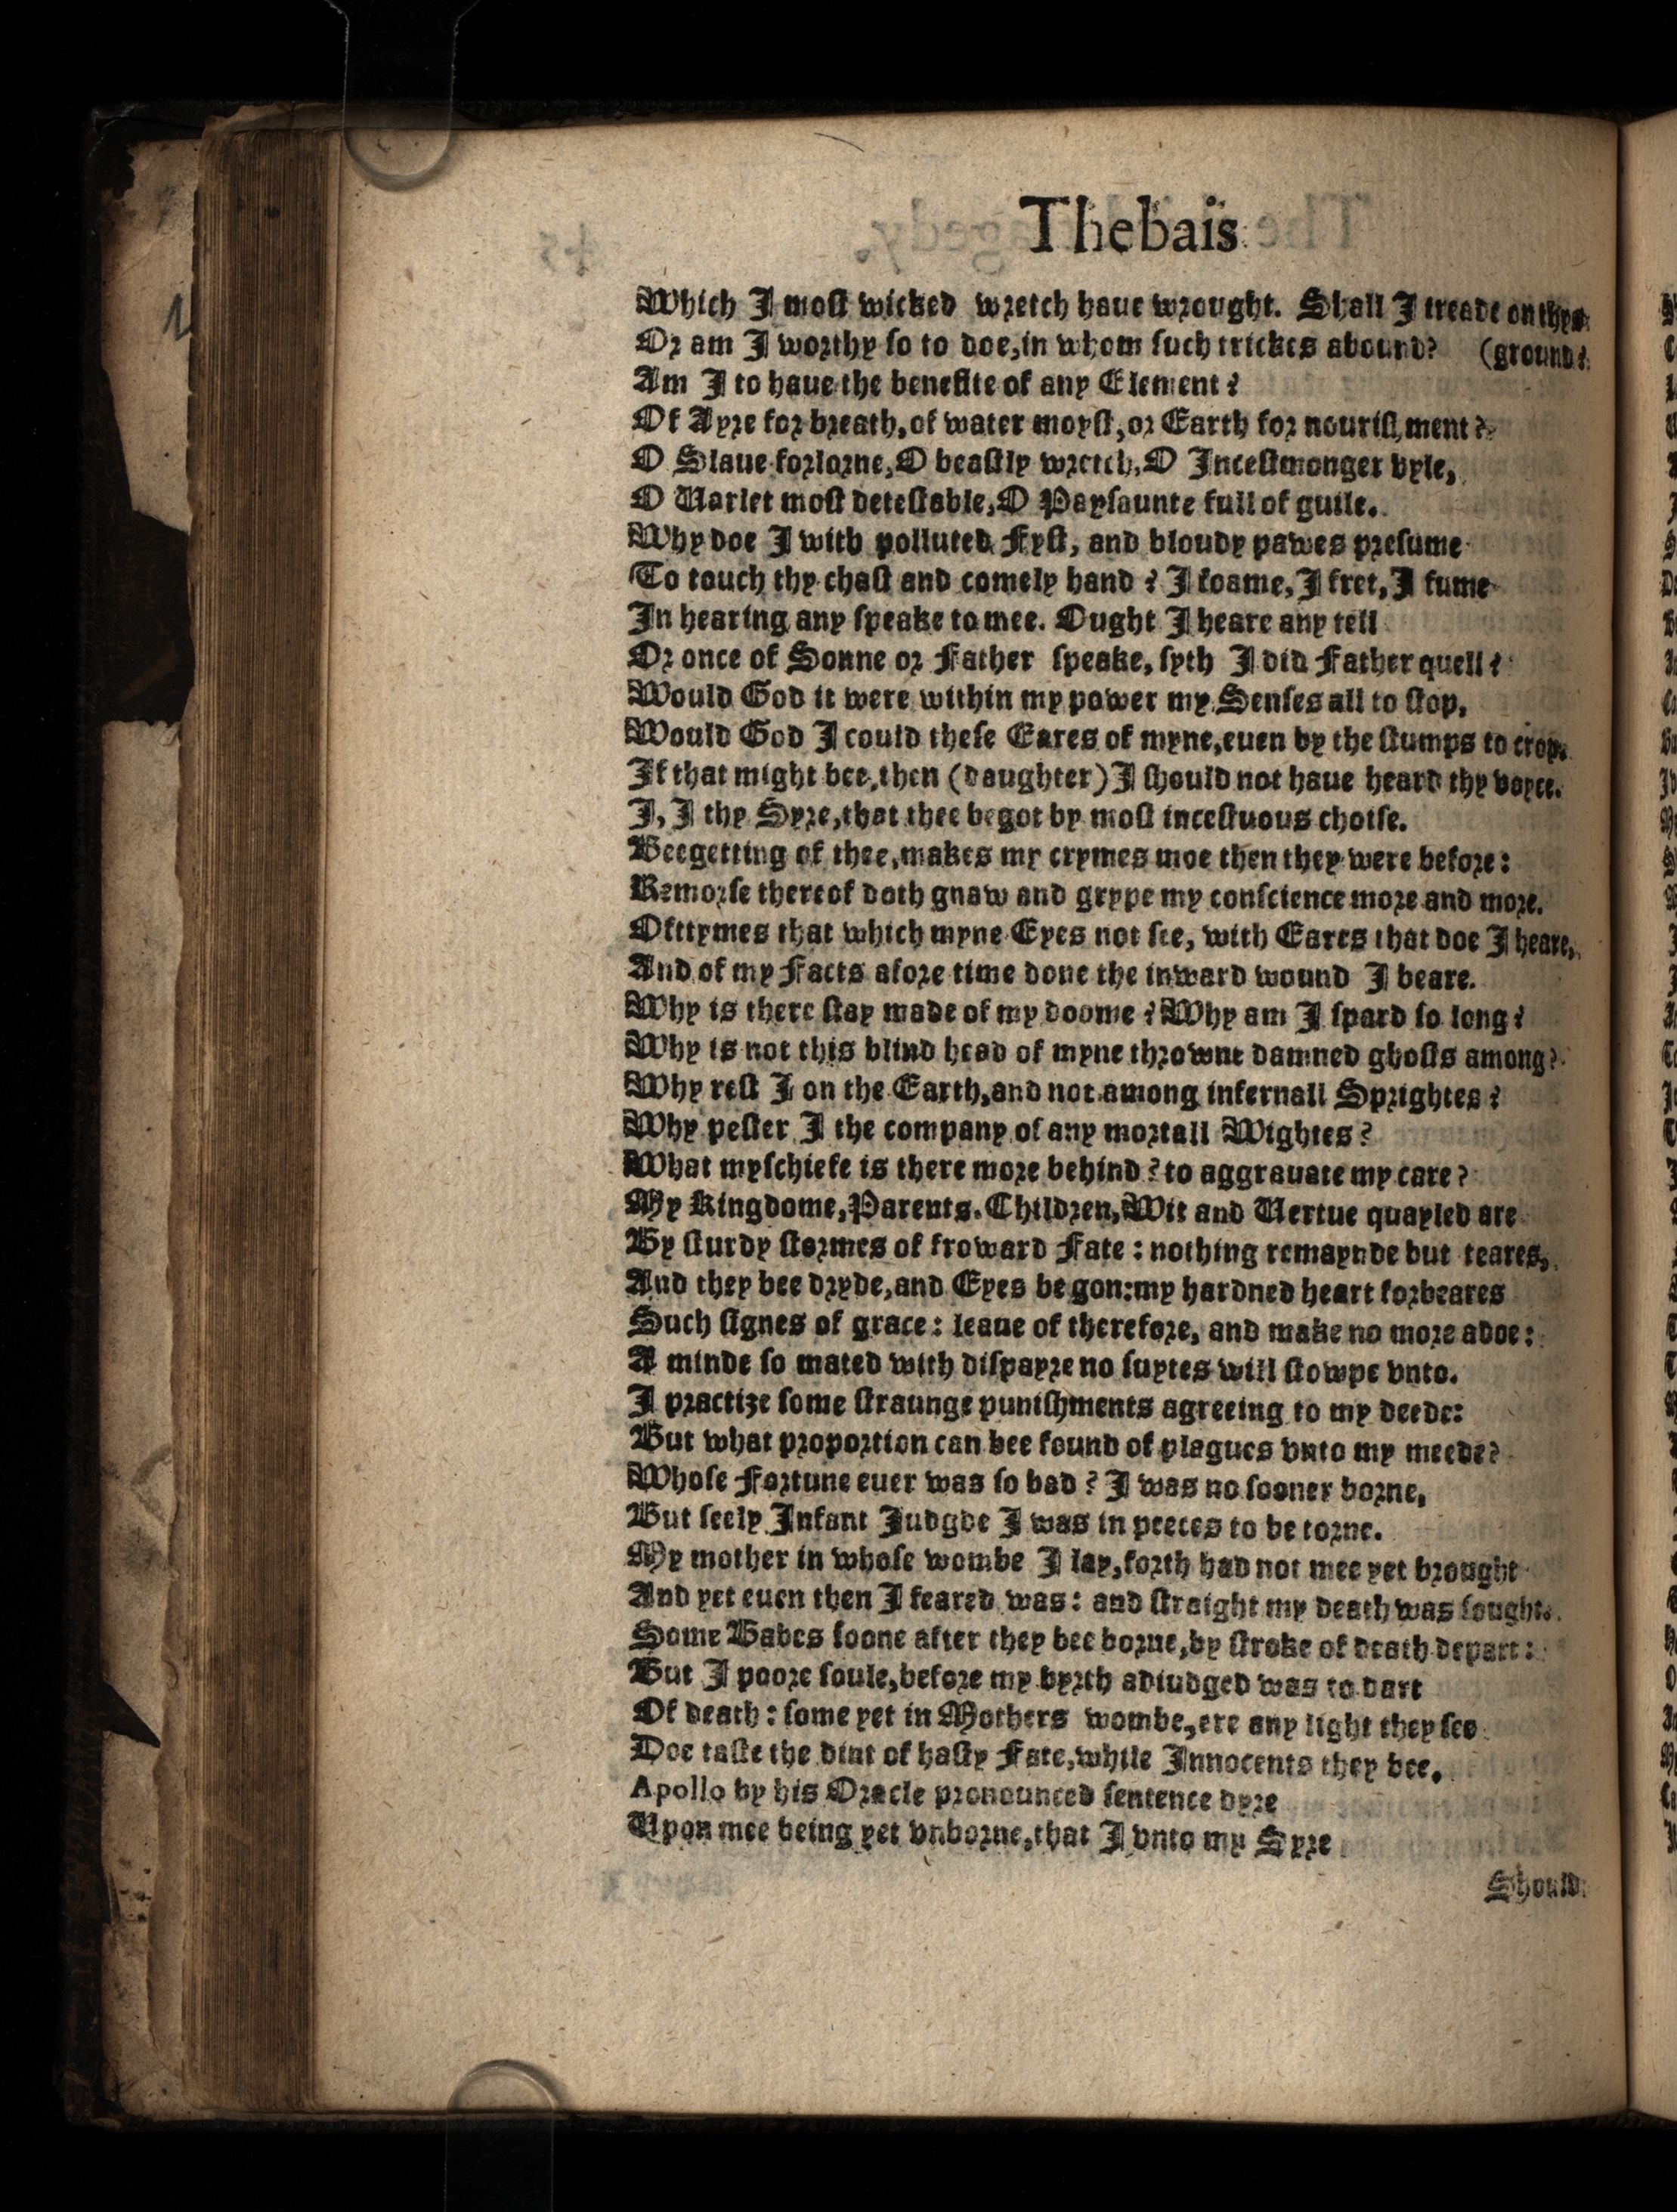 Thebais
Which I moſt wicked wretch haue wrought. Shall I treade on thys
Or am I worthy ſo to doe, in whom ſuch trickes abound? (ground?
Am I to haue the benefite of any Element?
Of Ayre for breath, of water moyſt, or Earth for nouriſhment?
O Slaue forlorne, O beaſtly wretch, O Inceſtmonger vyle,
O Varlet moſt deteſtable, O Payſaunte full of guile.
Why doe I with polluted Fyſt, and bloudy pawes preſume
To touch thy chaſt and comely hand? I foame, I fret, I fume
In hearing any ſpeake to mee. Ought I heare any tell
Or once of Sonne or Father ſpeake, ſyth I did Father quell?
Would God it were within my power my Senſes all to ſtop,
Would God I could theſe Eares of myne, euen by the ſtumps to crop.
If that might bee, then (daughter) I ſhould not haue heard thy voyce.
I, I thy Syre, that thee begot by moſt inceſtuous choiſe.
Beegetting of thee, makes my crymes moe then they were before:
Remorſe thereof doth gnaw and grype my conſcience more and more.
Ofttymes that which myne Eyes not ſee, with Eares that doe I heare,
And of my Facts afore time done the inward wound I beare.
Why is there ſtay made of my doome? Why am I ſpard ſo long?
Why is not this blind head of myne throwne damned ghoſts among?
Why reſt I on the Earth, and not among infernall Sprightes?
Why peſter I the company of any mortall Wightes?
What myſchiefe is there more behind? to aggrauate my care?
My Kingdome, Parents, Children, Wit and Vertue quayled are
By ſturdy ſtormes of froward Fate: nothing remaynde but teares,
And they bee dryde, and Eyes be gon: my hardned heart forbeares
Such ſignes of grace: leaue of therefore, and make no more adoe:
A minde ſo mated with diſpayre no ſuytes will ſtowpe vnto.
I practize ſome ſtraunge puniſhments agreeing to my deede:
But what proportion can bee found of plagues vnto my meede?
Whoſe Fortune euer was ſo bad? I was no ſooner borne,
But ſeely Infant Iudgde I was in peeces to be torne.
My mother in whoſe wombe I lay, forth had not mee yet brought
And yet euen then I feared was: and ſtraight my death was ſought.
Some Babes ſoone after they bee borne, by ſtroke of death depart:
But I poore ſoule, before my byrth adiudged was to dart
Of death: ſome yet in Mothers wombe, ere any light they ſee
Doe taſte the dint of haſty Fate, while Innocents they bee.
Apollo by his Oracle pronounced ſentence dyre
Vpon mee being yet vnborne, that I vnto my Syre
Should